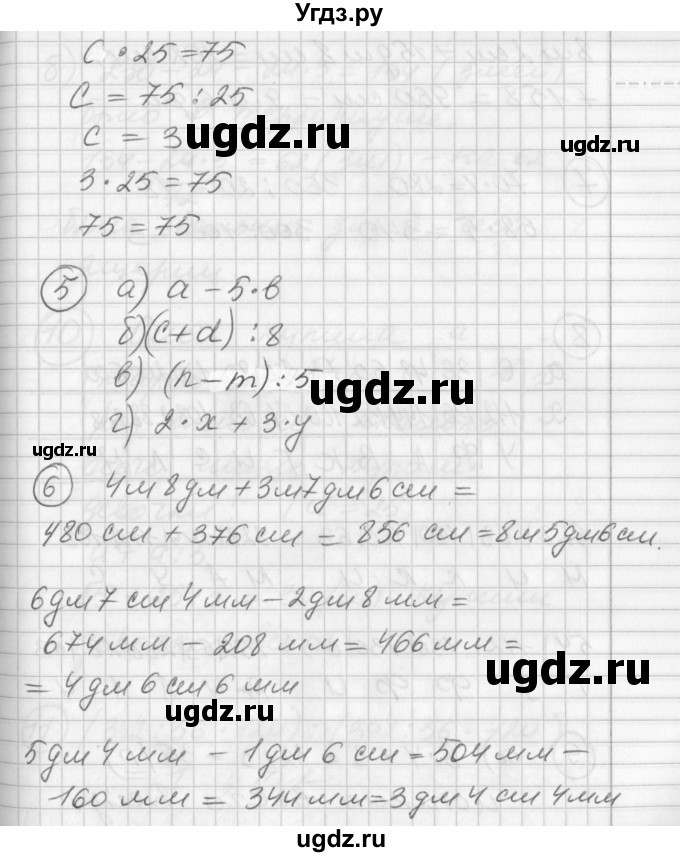 Угдз.ру
c · 25 = 75
c = 75 : 25
c = 3
ugdz.ru
ugdz.ru
3 · 25 = 75
75 = 75
5 а) a - 5 · b
б) (c + d) : 8
в) (n - m) : 5
ugdz.ru
г) 2 · x + 3 · y
ugdz.ru
6 4 м 8 дм + 3 м 7 дм 6 см =
480 см + 376 см = 856 см = 8 м 5 дм 6 см.
6 дм 7 см 4 мм - 2 дм 8 мм =
674 мм - 208 мм = 466 мм =
ugdz.ru
= 4 дм 6 см 6 мм
ugdz.ru
5 дм 4 мм - 1 дм 6 см = 504 мм -
160 мм = 344 мм = 3 дм 4 см 4 мм
ugdz.ru